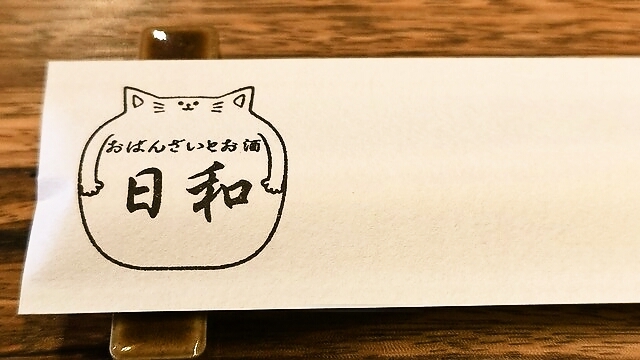 おばんざいとお酒
日和